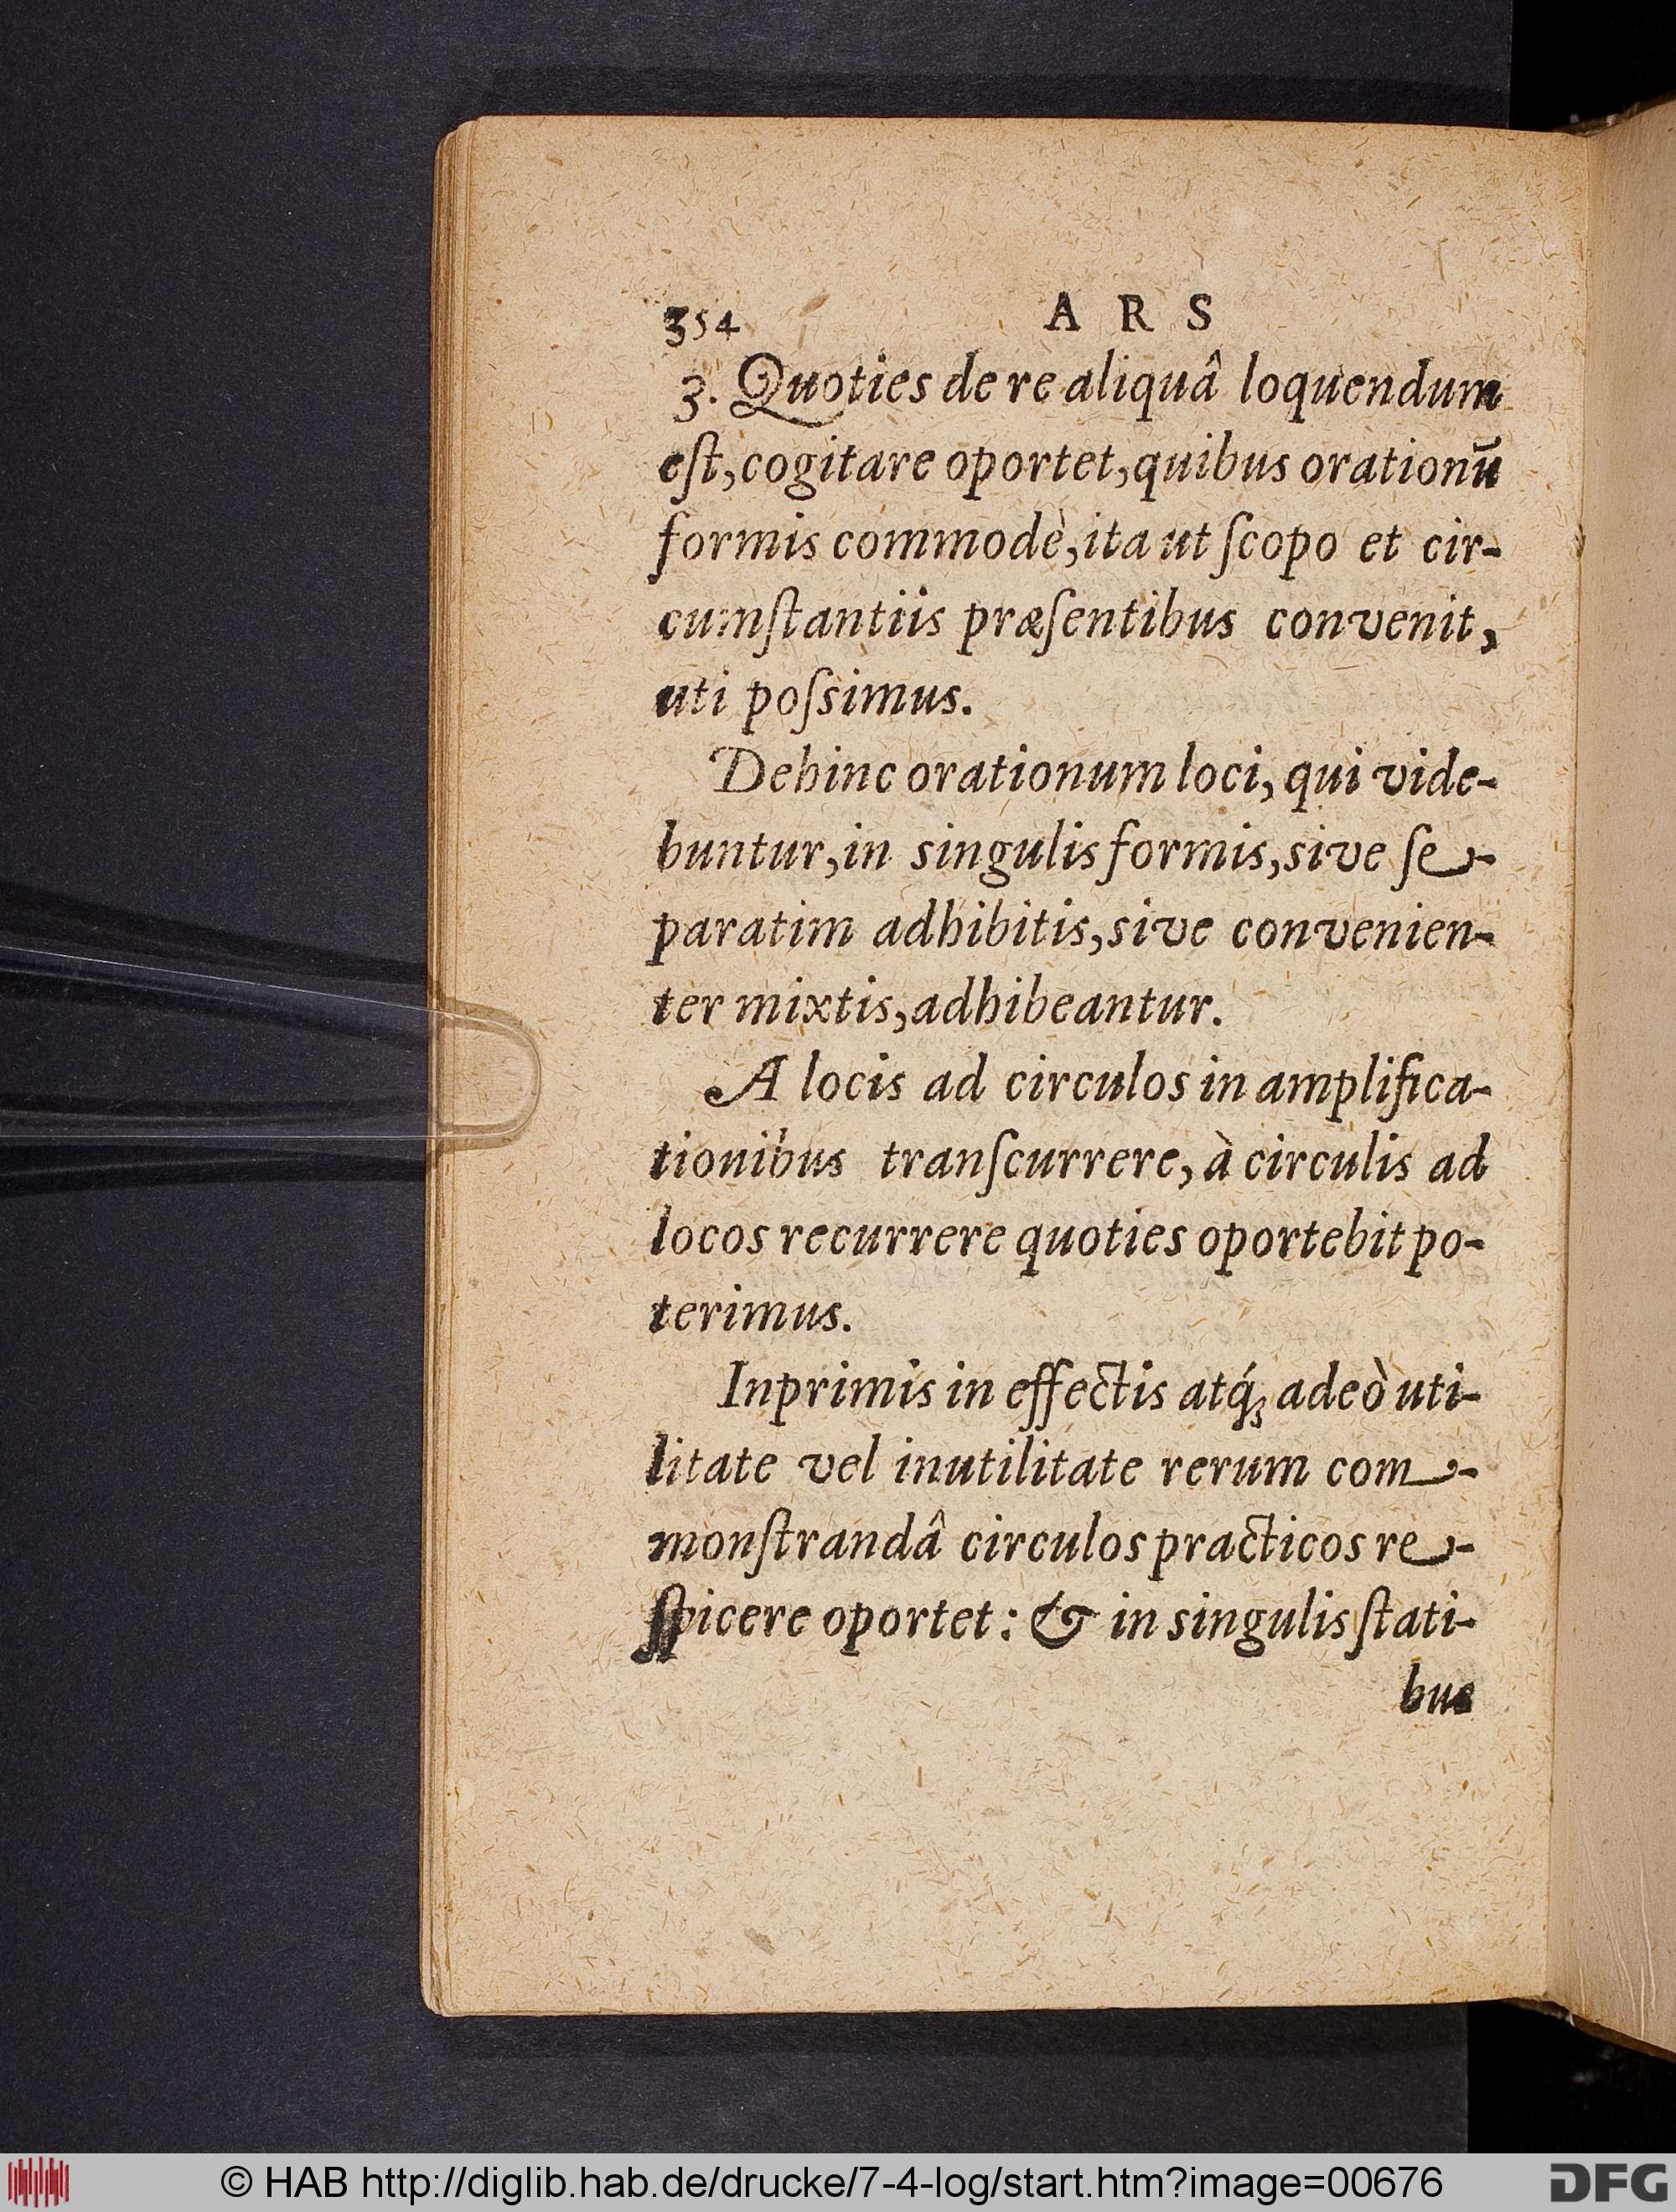 354 ARS
3. Quoties de re aliquâ loquendum
eſt, cogitare oportet, quibus orationū
formis commodè, ita ut ſcopo et cir-
cumſtantiis præſentibus convenit,
uti poſsimus.
Dehinc orationum loci, qui vide-
buntur, in singulis formis, sive ſe-
paratim adhibitis, sive convenien-
ter mixtis, adhibeantur.
A locis ad circulos in amplifica-
tionibus tranſcurrere, à circulis ad
locos recurrere quoties oportebit po-
terimus.
Inprimis in effectis atq́ꝫ adeò uti-
litate vel inutilitate rerum com-
monſtrandâ circulos practicos re-
ſpicere oportet: & in singulis ſtati-
bus
© HAB http://diglib.hab.de/drucke/7-4-log/start.htm?image=00676
DFG